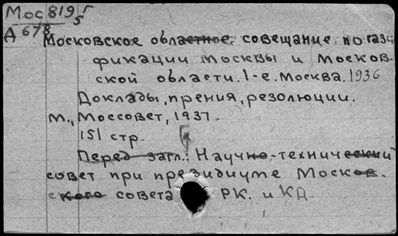 Мос 8195
5
Д 678
Московское областное совещание по гази-
фикации Москвы и Москов-
ской области. 1-е. Москва. 1936
Доклады, прения, резолюции.
М., Моссовет, 1937.
151 стр.
Перед загл.: Научно-технический
совет при президиуме Москов-
ского совета РК. и КД.